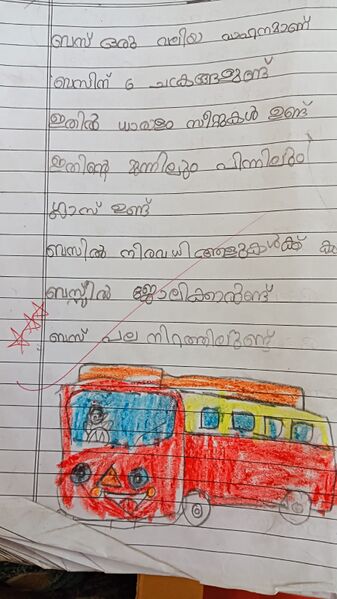 ബസ് ഒരു വലിയ വാഹനമാണ്
ബസിന് 6 ചക്രങ്ങളുണ്ട്
ഇതിൽ ധാരാളം സീറ്റുകൾ ഉണ്ട്
ഇതിന്റെ മുന്നിലും പിന്നിലും
ഗ്ലാസ് ഉണ്ട്
ബസിൽ നിരവധി ആളുകൾക്ക്
ബസ്സിൽ ജോലിക്കാരുണ്ട്
ബസ് പല നിറത്തിലുണ്ട്